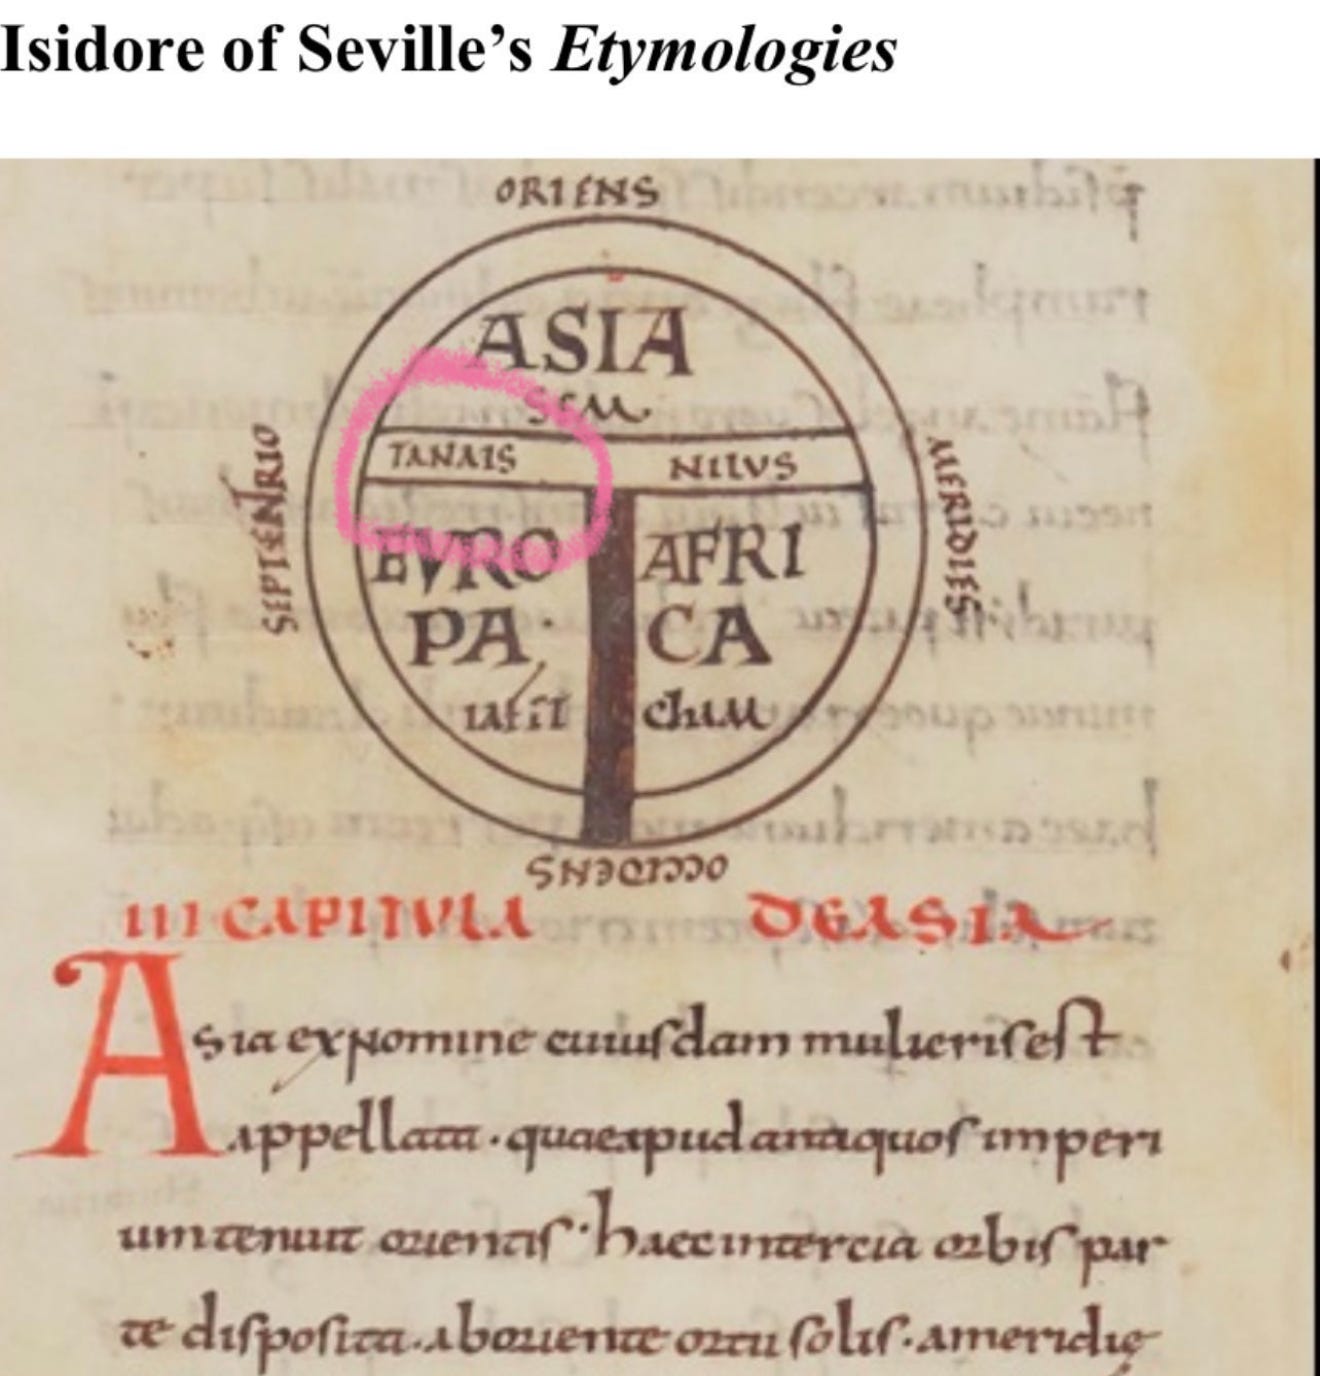 Isidore of Seville’s Etymologies
ORIENS
ASIA
SEM
TANAIS NILVS
SEPTENRIO
MERIDIES
EVRO AFRI
PA· CA
iafet cham
OCCIDENS
III CAPITVLA DE ASIA
Asia ex nomine cuiusdam mulieris est
appellata · quae apud antiquos imperi
um tenuit orientis · haec in tercia orbis par
te disposita · ab oriente ortu solis · a meridie